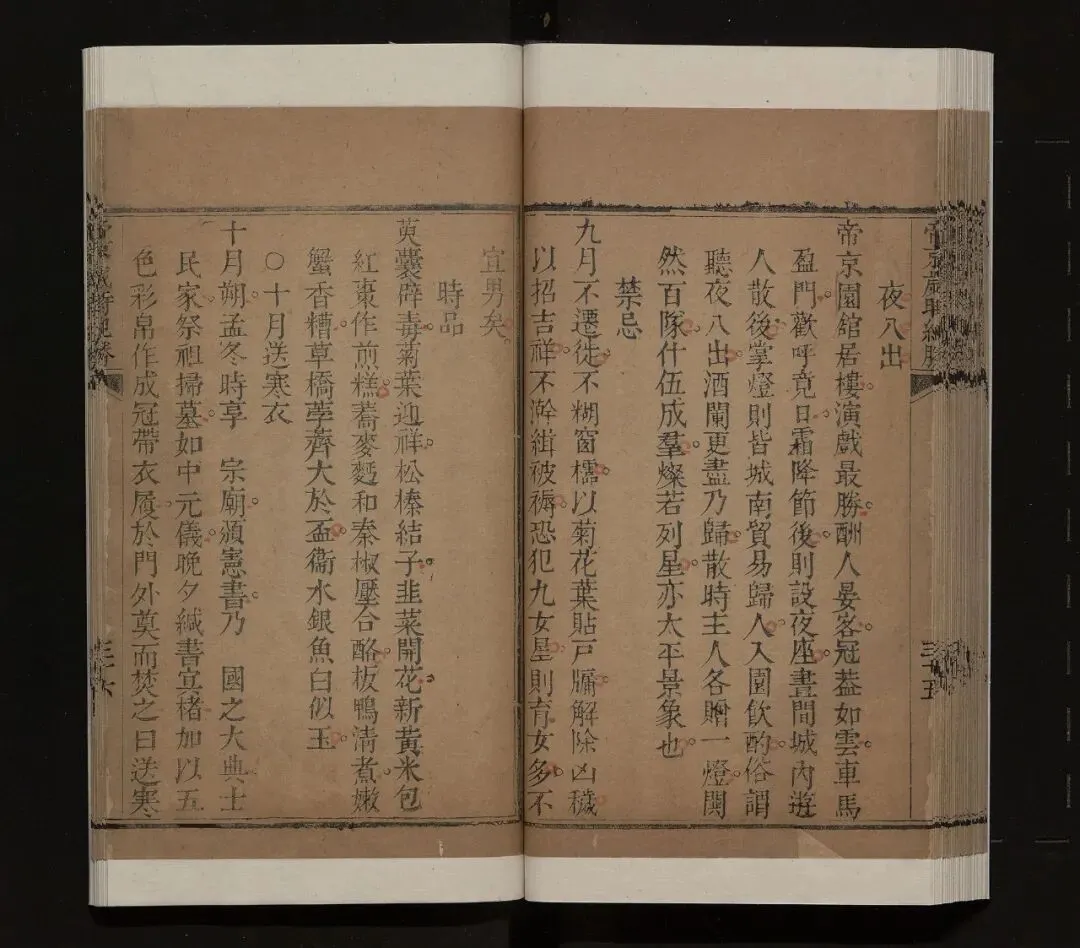 夜八出
帝京園舘居樓演戲最勝酬人宴客冠葢如雲車馬
盈門歡呼竟日霜降節後則設夜座晝間城內遊
人散後掌燈則皆城南貿易歸人入園飲酌俗謂
聽夜八出酒闌更盡乃歸散時主人各贈一燈閧
然百隊什伍成羣燦若列星亦太平景象也
禁忌
九月不遷徙不糊窗櫺以菊花葉貼戸牖解除凶穢
以招吉祥不澣緝被褥恐犯九女星則育女多不
宜男矣
時品
茰囊辟毒菊葉迎祥松榛結子韭菜開花新黃米包
紅棗作煎糕蕎麥麪和秦椒壓合酪板鴨清煮嫩
蟹香糟草橋荸薺大於盃衞水銀魚白似玉
○十月送寒衣
十月朔孟冬時享 宗廟頒憲書乃 國之大典士
民家祭祖掃墓如中元儀晚夕緘書冥楮加以五
色彩帛作成冠帶衣履於門外奠而焚之曰送寒
三十六
三十五